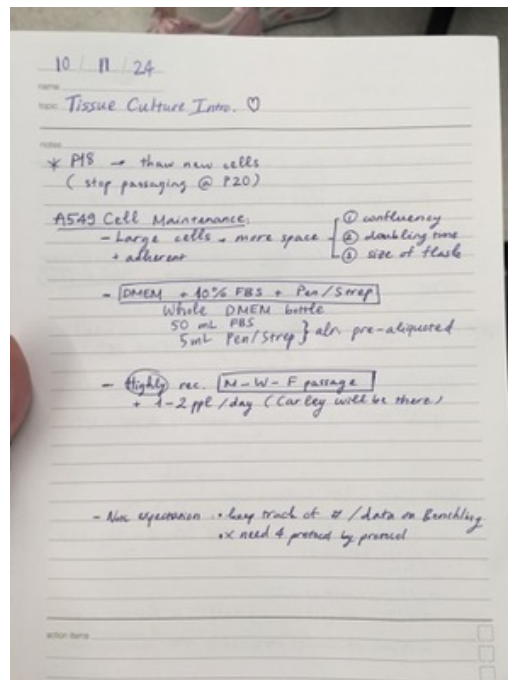 10 / 11 / 24
name
topic Tissue Culture Intro. ♡
notes
* P18 → thaw new cells
( stop passaging @ P20)
A549 Cell Maintenance:
- Large cells → more space
+ adherent
① confluency
② doubling time
③ size of flask
- DMEM + 10% FBS + Pen/Strep
Whole DMEM bottle
50 mL FBS
5mL Pen/Strep } alr. pre-aliquoted
- Highly rec. M-W-F passage
+ 1-2 ppl /day (Carley will be there)
- Note expectation : • keep track of # /data on Benchling
• x need 4 protocol by protocol
action items